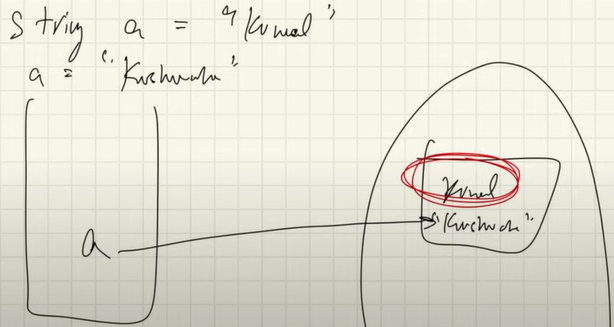 String a = "Kunal"
a = "Kushwaha"
Kunal
a
"Kushwaha"